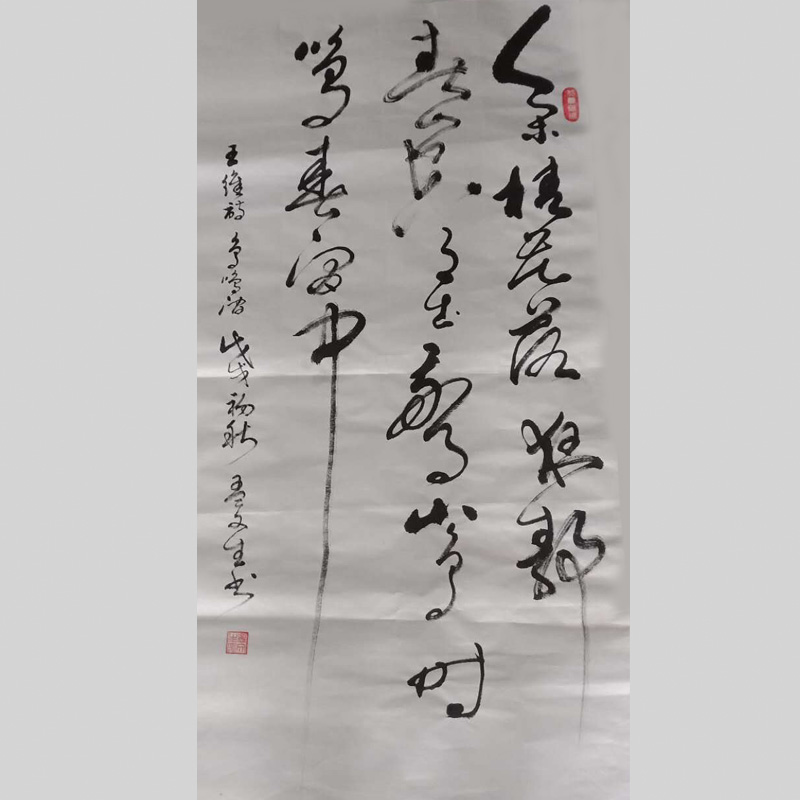 人闲桂花落夜静
春山空月出惊山鸟时
鸣春涧中
王维诗鸟鸣涧戊戌初秋孟文生书